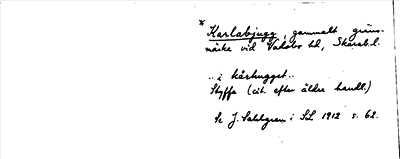 * Karlabjugg, gammalt gräns-
märke vid Vadsbo hd, Skarab.l.
.. i kårhugget..
Styffe (cit. efter äldre handl.)
Se J. Sahlgren i SL 1912 s. 62.